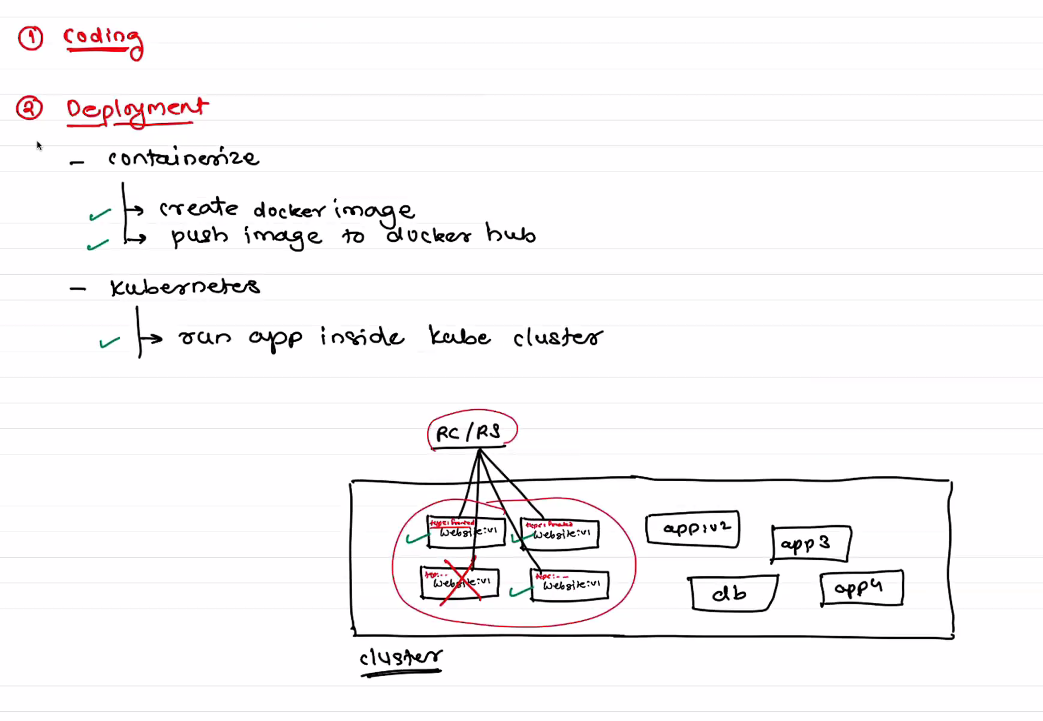 ① Coding
② Deployment
- containerize
→ create docker image
→ push image to docker hub
- kubernetes
→ run app inside kube cluster
RC/RS
type: frontend
website:v1
type: frontend
website:v1
website:v1
type:--
website:v1
app:v2
app3
db
app4
cluster